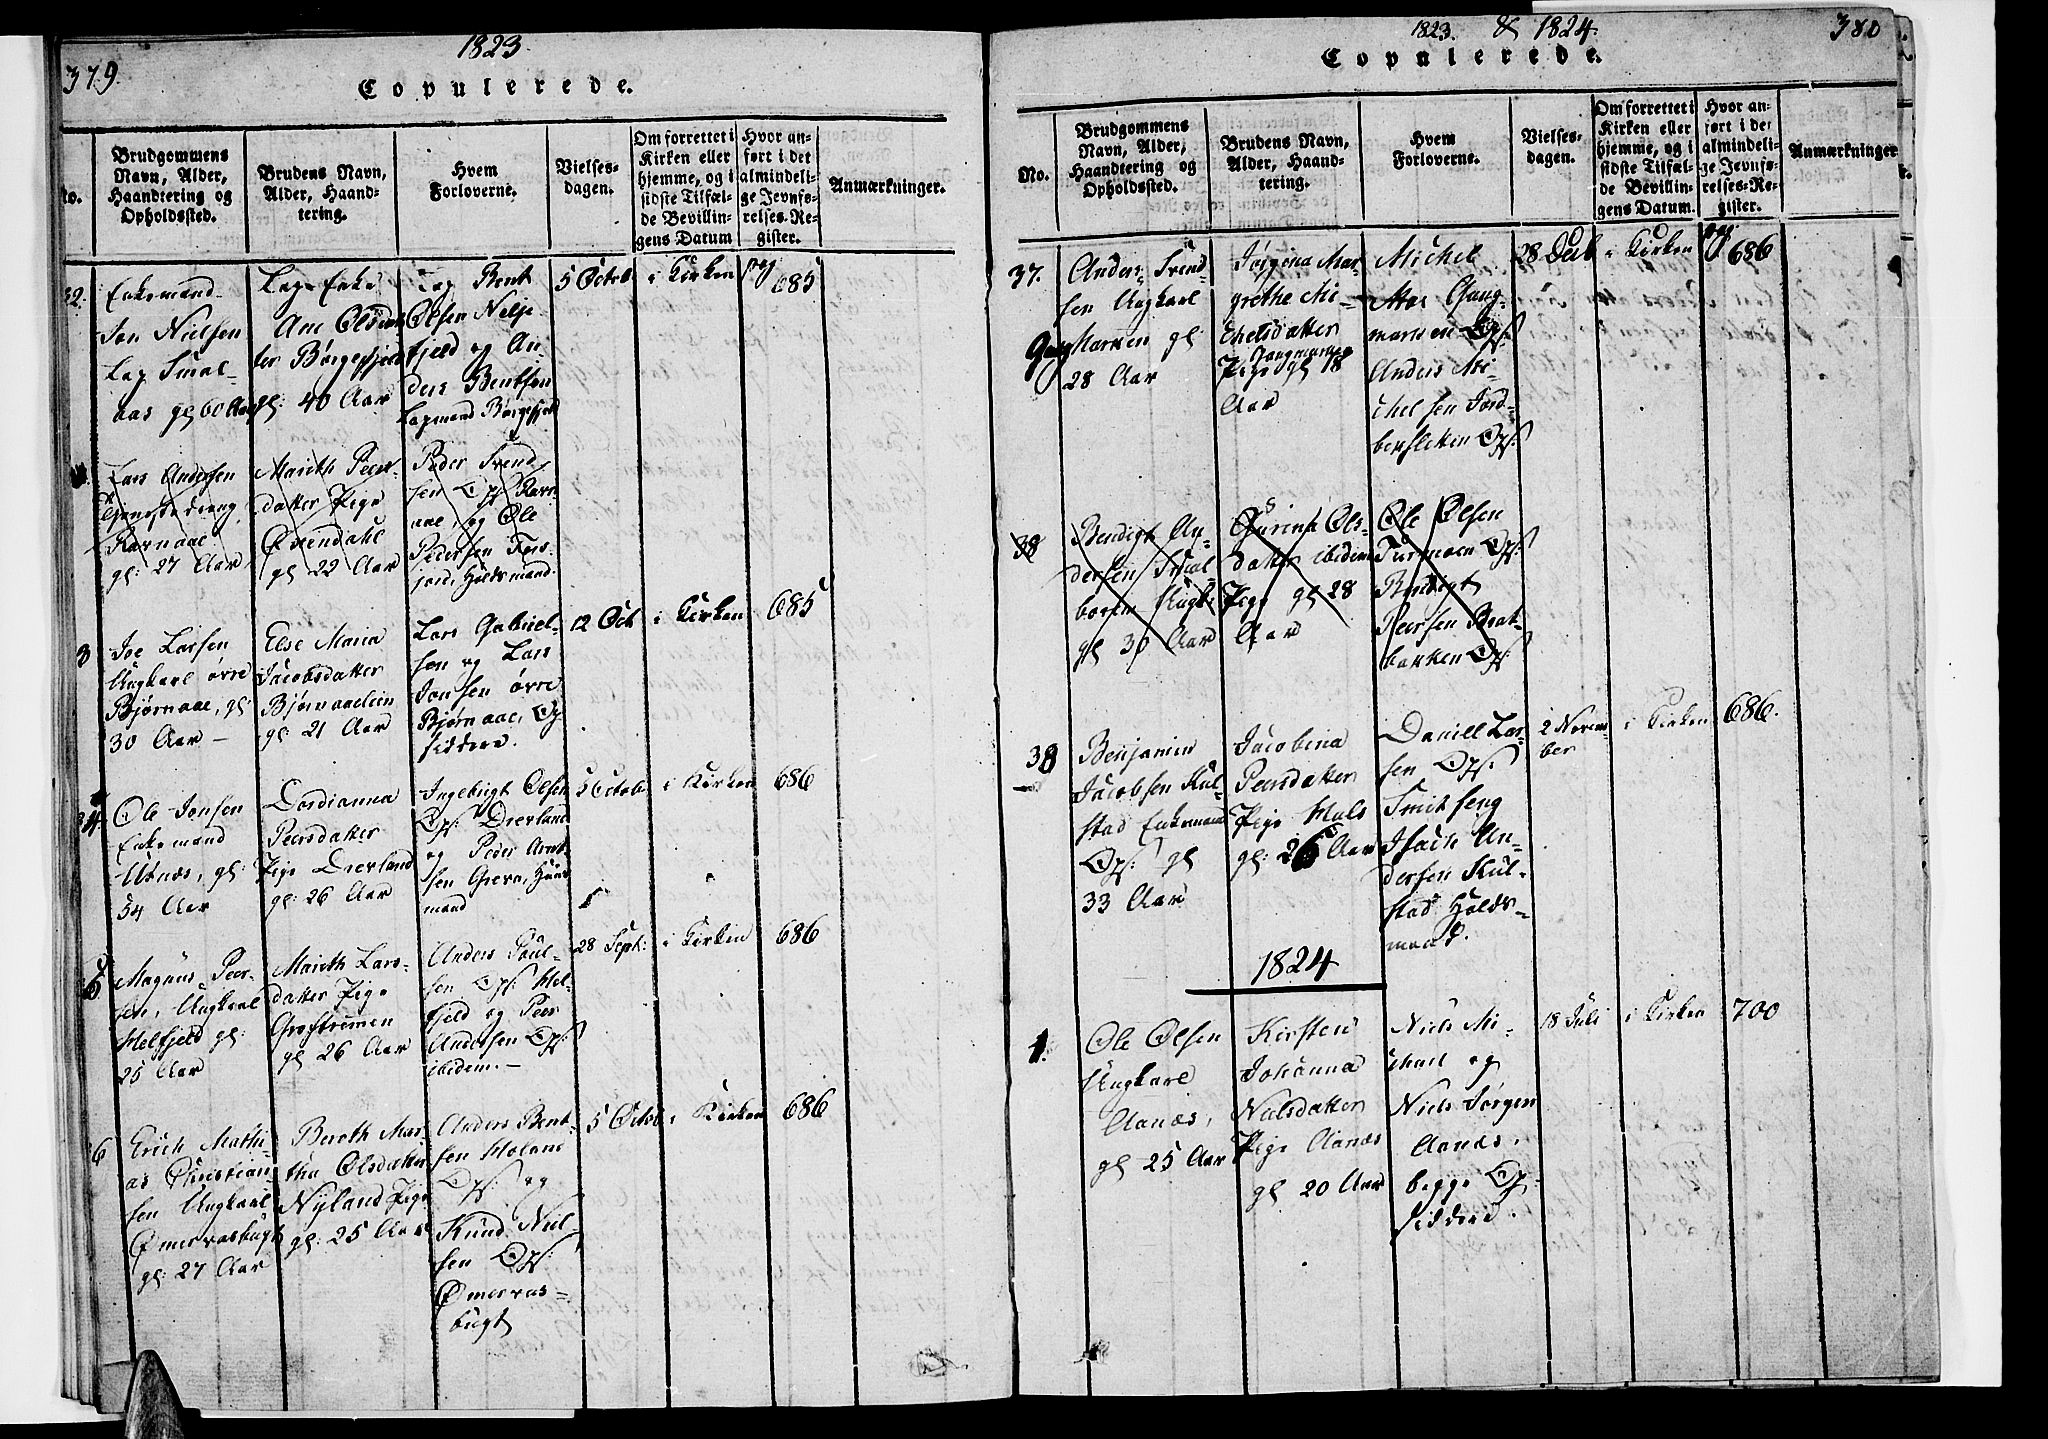 379.
1823.
Copulerede.
No.
Brudgommens
Navn, Alder,
Haandtering og
Opholdssted.
Brudens Navn,
Alder, Haand-
tering.
Hvem
Forloverne.
Vielses-
dagen.
Om forrettet i
Kirken eller
hjemme, og i
sidste Tilfæl-
de Bevillin-
gens Datum
Hvor an-
ført i det
almindeli-
ge Jevnfø-
relses-Re-
gister.
Anmærkninger.
32.
Enkemand
Jon Nielsen
Lap Smal-
aas gl 60 Aar
Lap Enke
Ane Olsdat
ter Børgefjeld
gl: 40 Aar
Lap Bent
Olsen
fjeld og An
ders Bentsen
Lapmand Børgefjeld
5 Octob
i Kirken
pag 685
Lars Andersen
Tjenestedreng
Ravnaae
gl: 27 Aar
Marith Peer-
datter Pige
gl 22 Aar
Peder Svend
sen Ops Ravn
aae, og Ole
Pedersen
Huusmand.
3
Joe Larsen
Ungkarl øvre
Bjørnaae, gl:
30 Aar –
Else Maria
Jacobsdatter
Bjørnaalien
gl: 21 Aar
Lars Gabriel-
sen og Lars
Jonsen øvre
Bjørnaae, Op
siddere.
12 Oct
i Kirken
685
34.
Ole Jonsen
Enkemand
gl:
54 Aar
Dordianna
Peersdatter
Pige Drevland
gl: 26 Aar
Ingebrigt Olsen
Ops: Drevland
og Peder Arnt
sen Huus
mand
5 Octob
i Kirken
686
5
Magnus Peer-
sen, Ungkarl
Helfjeld gl:
25 Aar
Marith Lars-
datter Pige
gl 26 Aar
Anders Poul-
sen Ops: Hel-
fjeld og Peer
Andersen Ops:
ibidem.–
28 Sept:
i Kirken
686
6
Erich Mathi
as Christian
sen Ungkarl
Ømmervasbugt
gl: 27 Aar
Bereth Mar
tha Olsdatter
Nyland Pige
gl: 25 Aar
Anders Bent
sen Holand
Ops: og
Knud Niel-
sen Ops:
Ømervas-
bugt
5 Octob
i Kirken
686
1823. & 1824.
380
Copulerede.
No.
Brudgommens
Navn, Alder,
Haandtering og
Opholdssted.
Brudens Navn,
Alder, Haand-
tering.
Hvem
Forloverne.
Vielses-
dagen.
Om forrettet i
Kirken eller
hjemme, og i
sidste Tilfæl-
de Bevillin-
gens Datum.
Hvor an-
ført i det
almindeli-
ge Jevnfø-
relses-Re-
gister.
Anmærkninger
37.
Anders Svend-
sen Ungkarl
gl
28 Aar
Jørgina Mar
grethe Mi-
chelsdatter
Pige gl 18
Aar
Michel
Ops:
Anders Mi-
chelsen Jord-
bersletten Ops:
28
i Kirken
pag 686
38
Bendigt An-
dersen
Ungk:
gl 30 Aar
Gurina Ols-
datter ibidem
Pige gl 28
Aar
Ole Olsen
Turmoen Ops:
Bendigt
Peersen Brat-
bakken Ops:
38
Benjamin
Jacobsen Kul-
stad Enkemand
Ops: gl
33 Aar
Jacobina
Peersdatter
Pige Huls
gl: 26 Aar
Daniel Lar-
sen Ops:
Smithseng
Isach An-
dersen Kul-
stad Huus-
mand.
2 Novem-
ber
i Kirken
686.
1824
1.
Ole Olsen
Ungkarl
Aanæs,
gl 25 Aar
Kirsten
Johanna
Nielsdatter
Pige Aanæs
gl 20 Aar
Niels Mi-
chael og
Niels Jørgen
Aanæs,
begge Op-
siddere.
18 Juli
i Kirken
700